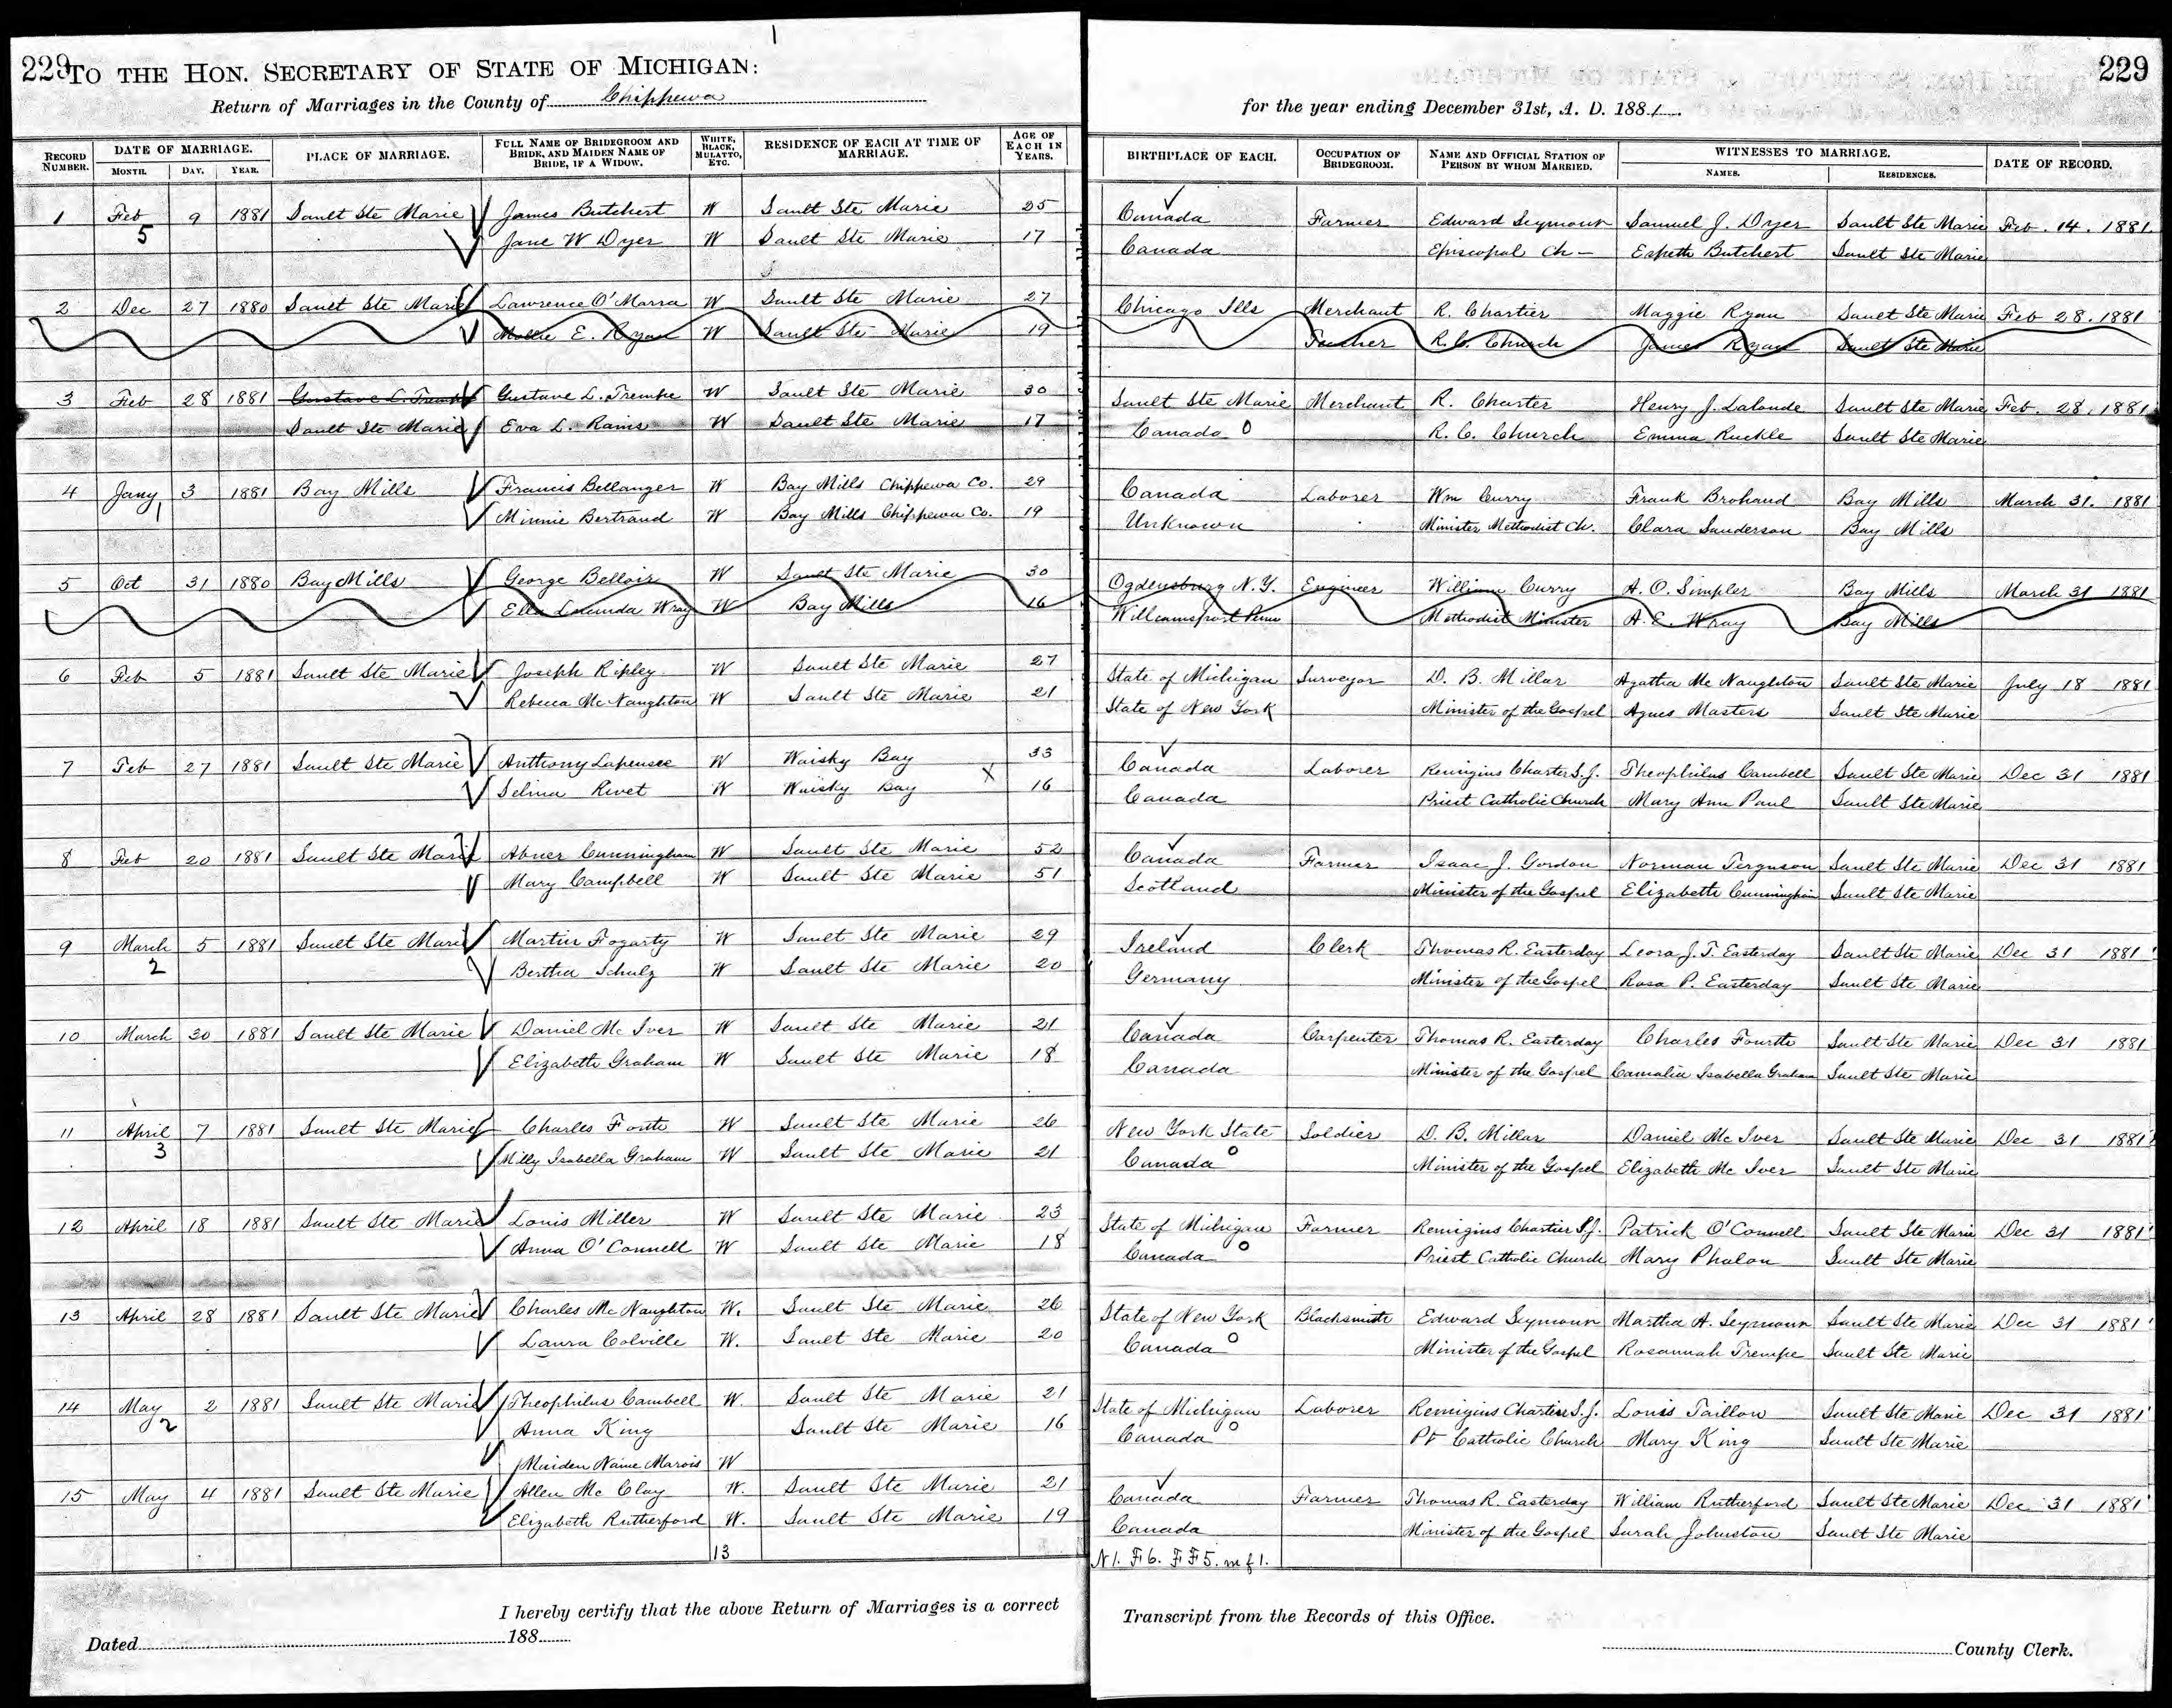 229 TO THE HON. SECRETARY OF STATE OF MICHIGAN: 229
Return of Marriages in the County of Chippewa for the year ending December 31st, A. D. 1881.
RECORD NUMBER. DATE OF MARRIAGE. MONTH. DAY. YEAR. PLACE OF MARRIAGE. FULL NAME OF BRIDEGROOM AND BRIDE, AND MAIDEN NAME OF BRIDE, IF A WIDOW. WHITE, BLACK, MULATTO, ETC. RESIDENCE OF EACH AT TIME OF MARRIAGE. AGE OF EACH IN YEARS. BIRTHPLACE OF EACH. OCCUPATION OF BRIDEGROOM. NAME AND OFFICIAL STATION OF PERSON BY WHOM MARRIED. WITNESSES TO MARRIAGE. NAMES. RESIDENCES. DATE OF RECORD.
1 Feb 9 1881 Sault Ste Marie James Butchert W Sault Ste Marie 25 Canada Farmer Edward Seymour Samuel J. Dyer Sault Ste Marie Feb. 14. 1881
5 Jane W Dyer W Sault Ste Marie 17 Canada Episcopal Ch - Espeth Butchert Sault Ste Marie
2 Dec 27 1880 Sault Ste Marie Lawrence O'Marra W Sault Ste Marie 27 Chicago Ills Merchant R. Chartier Maggie Ryan Sault Ste Marie Feb 28. 1881
Mollie E. Ryan W Sault Ste Marie 19 R. C. Church James Ryan Sault Ste Marie
3 Feb 28 1881 Gustave L. Trempe Gustave L. Trempe W Sault Ste Marie 30 Sault Ste Marie Merchant R. Charter Henry J. Lalonde Sault Ste Marie Feb. 28. 1881
Sault Ste Marie Eva L. Rains W Sault Ste Marie 17 Canada R. C. Church Emma Ruckle Sault Ste Marie
4 Jany 3 1881 Bay Mills Francis Bellanger W Bay Mills Chippewa Co. 29 Canada Laborer Wm Curry Frank Brohaud Bay Mills March 31. 1881
1 Minnie Bertrand W Bay Mills Chippewa Co. 19 Unknown Minister Methodist Ch. Clara Sanderson Bay Mills
5 Oct 31 1880 Bay Mills George Belloir W Sault Ste Marie 30 Ogdensburg N.Y. Engineer William Curry A. O. Simpler Bay Mills March 31 1881
Ella Lucinda Wray W Bay Mills 16 Williamsport Penn Methodist Minister A. E. Wray Bay Mills
6 Feb 5 1881 Sault Ste Marie Joseph Ripley W Sault Ste Marie 27 State of Michigan Surveyor D. B. Millar Agatha Mc Naughton Sault Ste Marie July 18 1881
Rebecca Mc Naughton W Sault Ste Marie 21 State of New York Minister of the Gospel Agnes Masters Sault Ste Marie
7 Feb 27 1881 Sault Ste Marie Anthony Lapensee W Waisky Bay 33 Canada Laborer Remigius Charter S.J. Theophilus Cambell Sault Ste Marie Dec 31 1881
Selina Rivet W Waisky Bay X 16 Canada Priest Catholic Church Mary Ann Paul Sault Ste Marie
8 Feb 20 1881 Sault Ste Marie Abner Cunningham W Sault Ste Marie 52 Canada Farmer Isaac J. Gordon Norman Ferguson Sault Ste Marie Dec 31 1881
Mary Campbell W Sault Ste Marie 51 Scotland Minister of the Gospel Elizabeth Cunningham Sault Ste Marie
9 March 5 1881 Sault Ste Marie Martin Fogarty W Sault Ste Marie 29 Ireland Clerk Thomas R. Easterday Leora J. T. Easterday Sault Ste Marie Dec 31 1881
2 Bertha Schulz W Sault Ste Marie 20 Germany Minister of the Gospel Rosa P. Easterday Sault Ste Marie
10 March 30 1881 Sault Ste Marie Daniel Mc Iver W Sault Ste Marie 21 Canada Carpenter Thomas R. Easterday Charles Fourth Sault Ste Marie Dec 31 1881
Elizabeth Graham W Sault Ste Marie 18 Canada Minister of the Gospel Camalia Isabella Graham Sault Ste Marie
11 April 7 1881 Sault Ste Marie Charles Forth W Sault Ste Marie 26 New York State Soldier D. B. Millar Daniel Mc Iver Sault Ste Marie Dec 31 1881
3 Milly Isabella Graham W Sault Ste Marie 21 Canada Minister of the Gospel Elizabeth Mc Iver Sault Ste Marie
12 April 18 1881 Sault Ste Marie Louis Miller W Sault Ste Marie 23 State of Michigan Farmer Remigius Chartier S.J. Patrick O'Connell Sault Ste Marie Dec 31 1881
Anna O'Connell W Sault Ste Marie 18 Canada Priest Catholic Church Mary Phalon Sault Ste Marie
13 April 28 1881 Sault Ste Marie Charles Mc Naughton W. Sault Ste Marie 26 State of New York Blacksmith Edward Seymour Martha A. Seymour Sault Ste Marie Dec 31 1881
Laura Colville W. Sault Ste Marie 20 Canada Minister of the Gospel Rosannah Trempe Sault Ste Marie
14 May 2 1881 Sault Ste Marie Theophilus Cambell W. Sault Ste Marie 21 State of Michigan Laborer Remigius Chartier S.J. Louis Taillow Sault Ste Marie Dec 31 1881
2 Anna King Sault Ste Marie 16 Canada Pt Catholic Church Mary King Sault Ste Marie
Maiden Name Marois W
15 May 4 1881 Sault Ste Marie Allen Mc Clay W. Sault Ste Marie 21 Canada Farmer Thomas R. Easterday William Rutherford Sault Ste Marie Dec 31 1881
Elizabeth Rutherford W. Sault Ste Marie 19 Canada Minister of the Gospel Sarah Johnston Sault Ste Marie
13 N 1. F 6. F F 5. m f 1.
I hereby certify that the above Return of Marriages is a correct Transcript from the Records of this Office.
Dated 188 County Clerk.